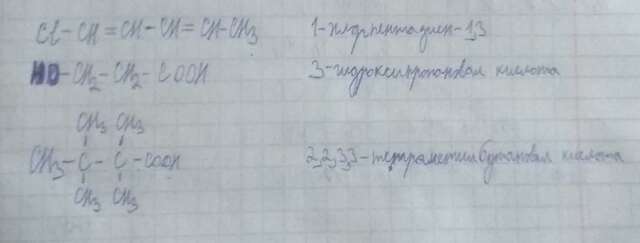 Cl-CH=CH-CH=CH-CH3 1-хлорпентадиен-1,3
HO-CH2-CH2-COOH 3-гидроксипропановая кислота
CH3 CH3
CH3-C-C-COOH 2,2,3,3-тетраметилбутановая кислота
CH3 CH3